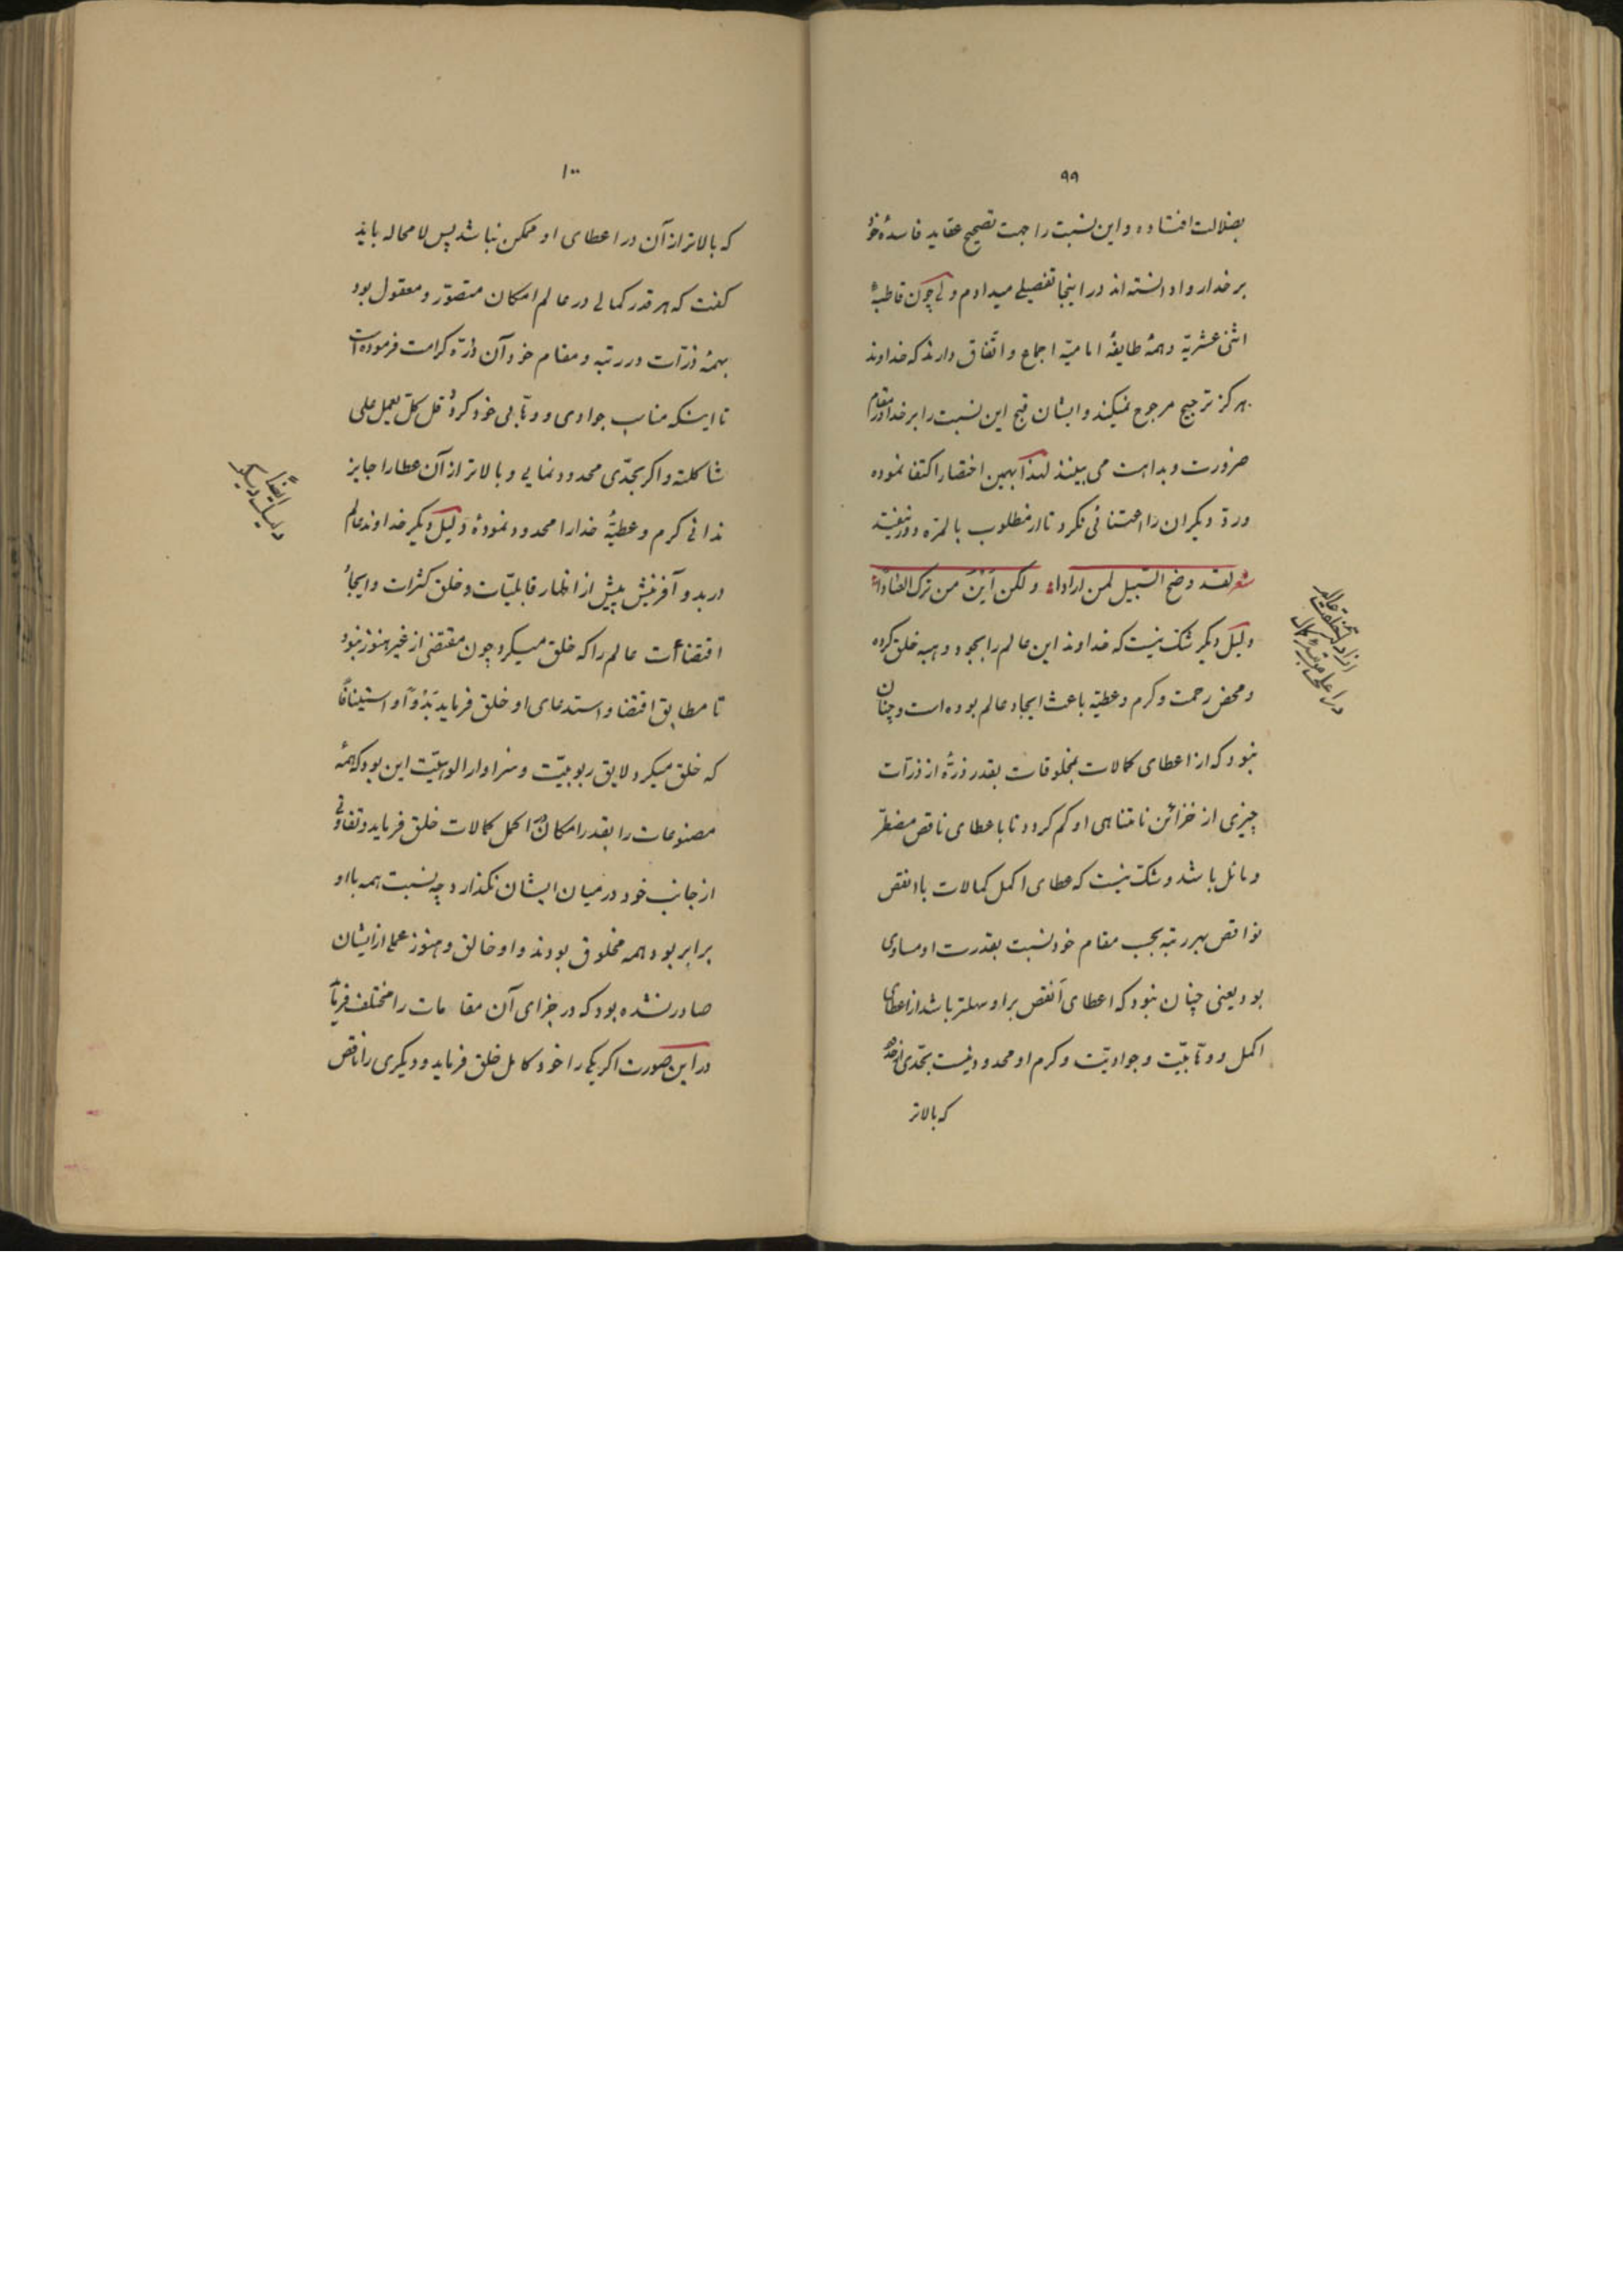 ۹۹
بضلالت افتاده و این نسبت را جهت تصحیح عقاید فاسدهٔ خود
بر خدا روا دانسته‌اند در اینجا تفصیلی میدادم ولی چون قاطبهٔ
اثنی عشریّه و همهٔ طایفهٔ امامیّه اجماع و اتّفاق دارند که خداوند
هرکز ترجیح مرجوع نمیکند و ایشان قبح این نسبت را بر خدا در مقام
ضرورت و بداهت می بینند لهذا بهمین اختصار اکتفا نموده
و ردّ دیکران را اعتنائی نکرد تا از مطلوب بالمرّه دور نیفتند
شعر لقد وضح السّبیل لمن اراداه ولکن این من ترک
دلیل دیکر شک نیست که خداوند این عالم را بجود و هبه خلق کرده
و محض رحمت و کرم و عطیّه باعث ایجاد عالم بوده است و چنان
نبود که از اعطای کمالات بمخلوقات بقدر ذرّهٔ از ذرّات
چیزی از خزائن نامتناهی او کم کردد تا باعطای ناقص مضطرّ
و مائل باشد و شک نیست که عطای اکمل کمالات با انقص
نواقص بهر رتبه بحسب مقام خود نسبت بقدرت او مساوی
بود یعنی چنان نبود که اعطای اَنقص بر او سهلتر باشد از اعطای
اکمل و وهّابیّت و جوادیّت و کرم او محدود نیست بحدّی از حدود
که بالاتر
۱۰۰
که بالاتر از آن در اعطای او ممکن نباشد پس لامحاله باید
کفت که هر قدر کمالی در عالم امکان متصوّر و معقول بود
بهمهٔ ذرّات در رتبه و مقام خود آن ذرّه کرامت فرموده است
تا اینکه مناسب جوادی و وهّابی خود کرده قل کلّ یعمل علی
شاکلته و اکر بحدّی محدود نمایی و بالاتر از آن عطا را جایز
ندانی کرم و عطیّهٔ خدا را محدود نمودهٔ دلیل دیکر خداوند عالم
در بدو آفرینش پیش از اظهار قابلیّات و خلق کثرات و ایجاد
اقتضاآت عالم را که خلق میکرد چون مقتضی از غیر هنوز نبود
تا مطابق اقتضا و استدعای او خلق فرماید بَدْوًا و استینافًا
که خلق میکرد لایق ربوبیّت و سزاوار الوهیّت این بود که همهٔ
مصنوعات را بقدر امکان در اکمل کمالات خلق فرماید و تفاوتی
از جانب خود در میان ایشان نکذارد چه نسبت همه با او
برابر بود همه مخلوق بودند و او خالق و هنوز عملی از ایشان
صادر نشده بود که در جزای آن مقامات را مختلف فرماید
در این صورت اکر یکی را خود کامل خلق فرماید و دیکری را ناقص
ایضاً
دلیل دیکر